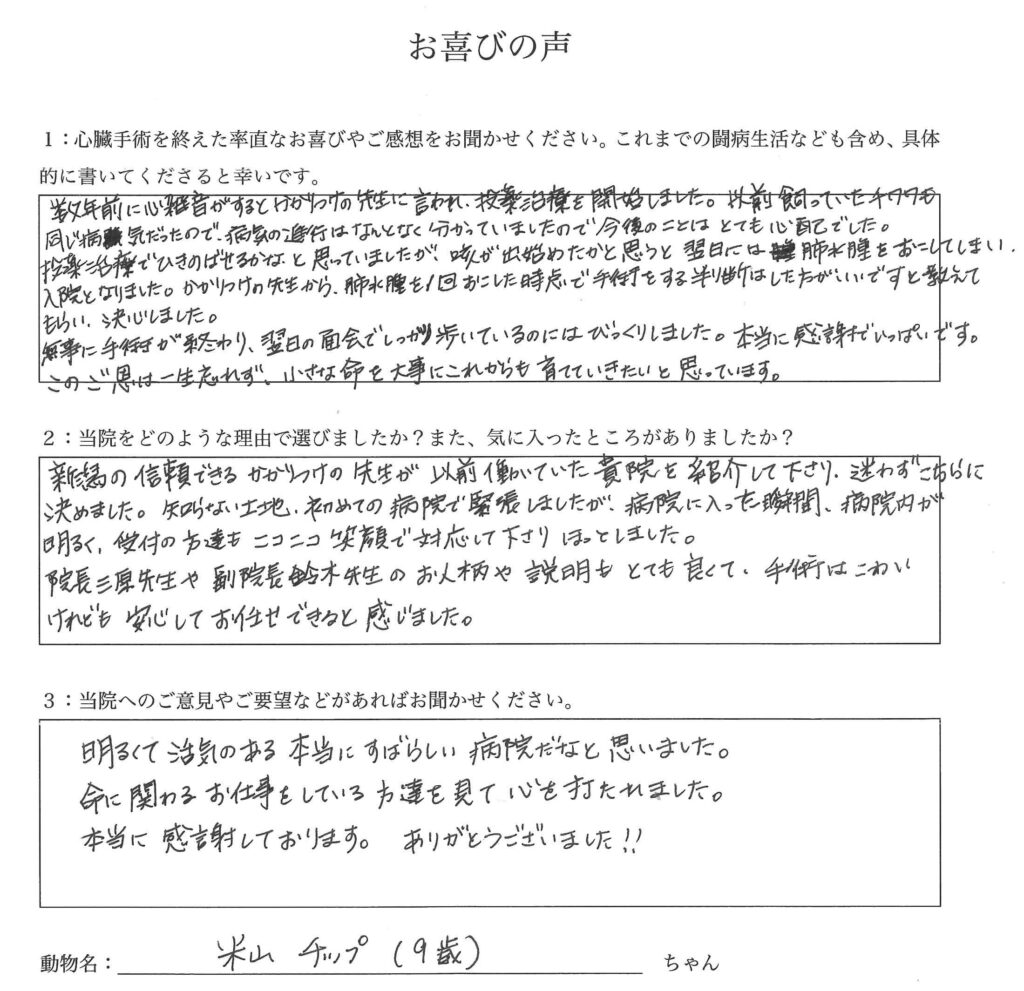 お喜びの声
1：心臓手術を終えた率直なお喜びやご感想をお聞かせください。これまでの闘病生活なども含め、具体
的に書いてくださると幸いです。
数年前に心雑音がするとかかりつけの先生に言われ、投薬治療を開始しました。以前飼っていたチワワも
同じ病気だったので、病気の進行はなんとなく分かっていましたので今後のことはとても心配でした。
投薬治療でひきのばせるかなと思っていましたが、咳が出始めたかと思うと翌日には肺水腫をおこしてしまい、
入院となりました。かかりつけの先生から、肺水腫を1回おこした時点で手術をする判断はした方がいいですと教えて
もらい、決心しました。
無事に手術が終わり、翌日の面会でしっかり歩いているのにはびっくりしました。本当に感謝でいっぱいです。
このご恩は一生忘れず、小さな命を大事にこれからも育てていきたいと思っています。
2：当院をどのような理由で選びましたか？また、気に入ったところがありましたか？
新潟の信頼できるかかりつけの先生が以前働いていた貴院を紹介して下さり、迷わずこちらに
決めました。知らない土地、初めての病院で緊張しましたが、病院に入った瞬間、病院内が
明るく、受付の方達もニコニコ笑顔で対応して下さりほっとしました。
院長三原先生や副院長鈴木先生のお人柄や説明もとても良くて、手術はこわい
けれども安心してお任せできると感じました。
3：当院へのご意見やご要望などがあればお聞かせください。
明るくて活気のある本当にすばらしい病院だなと思いました。
命に関わるお仕事をしている方達を見て心を打たれました。
本当に感謝しております。ありがとうございました!!
動物名：米山 チップ (9歳) ちゃん